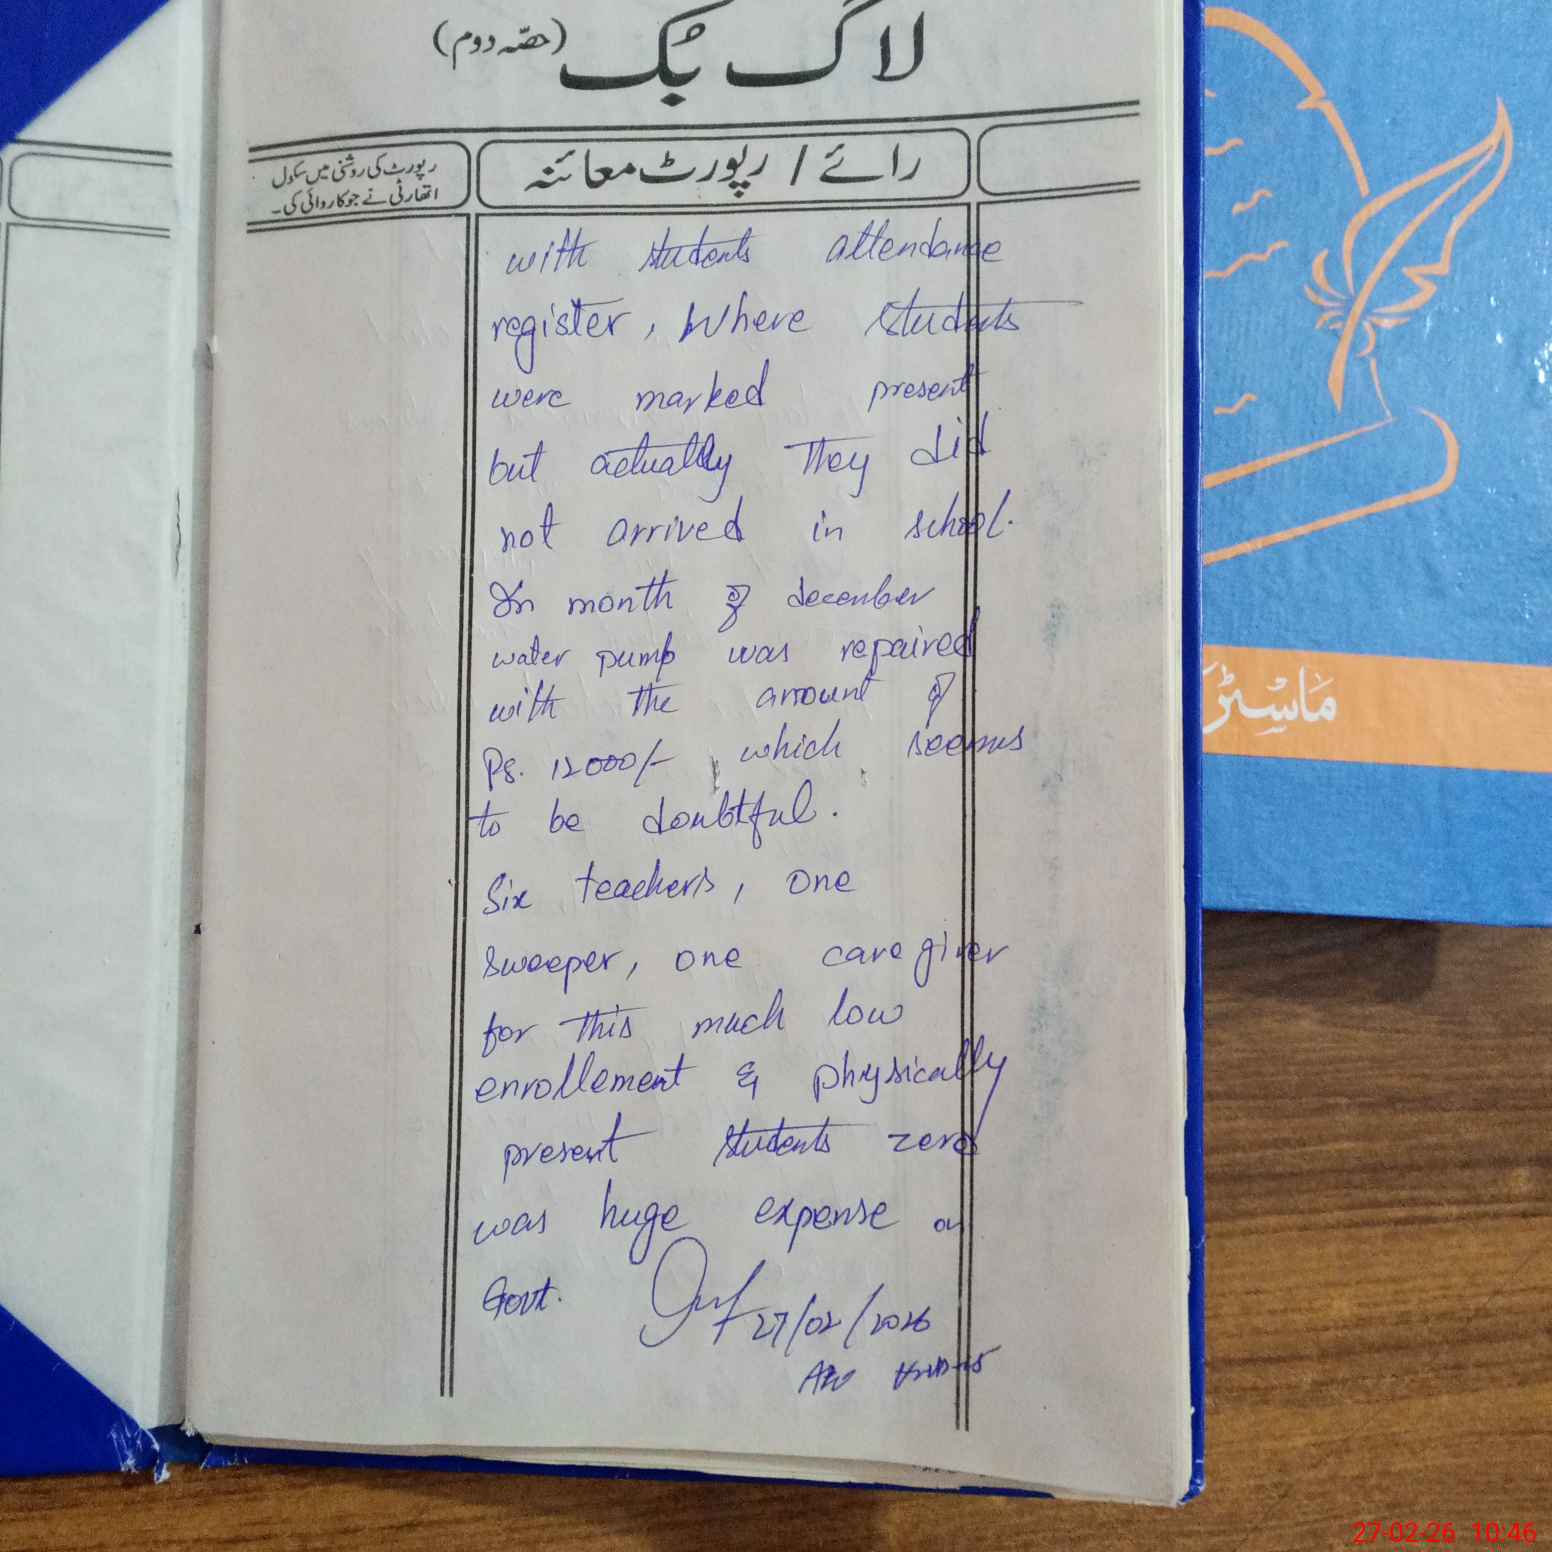 لاگ بُک (حصّہ دوم)
رائے / رپورٹ معائنہ
رپورٹ کی روشنی میں سکول
اتھارٹی نے جو کاروائی کی۔
with students attendance
register, Where students
were marked present
but actually They did
not arrived in school.
In month of december
water pump was repaired
with the amount of
Rs. 12000/- , which seems
to be doubtful.
Six teachers, one
sweeper, one care giver
for this much low
enrollement & physically
present students zero
was huge expense on
Govt.
27/02/2026
ماسٹر
27-02-26 10:46